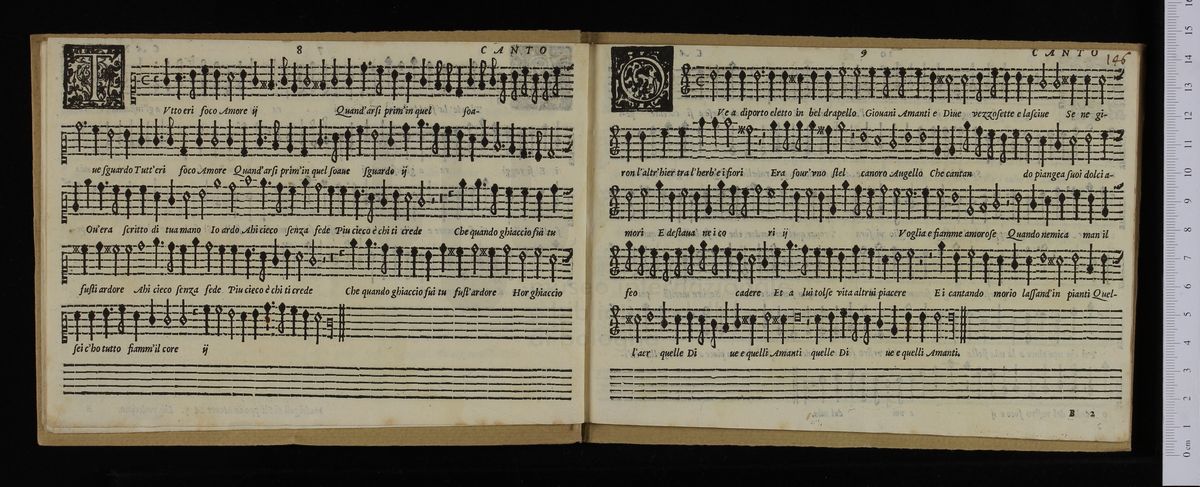 8
CANTO
T
Vtto eri foco Amore ij Quand'arſi prim'in quel ſoa-
ue ſguardo Tutt'eri foco Amore Quand'arſi prim'in quel ſoaue ſguardo ij
Ou'era ſcritto di tua mano Io ardo Ahi cieco ſenza fede Piu cieco è chi ti crede Che quando ghiaccio fui tu
fuſti ardore Ahi cieco ſenza fede Piu cieco è chi ti crede Che quando ghiaccio fui tu fuſt'ardore Hor ghiaccio
ſei c'ho tutto fiamm'il core ij
9
CANTO
146
O
Ve a diporto eletto in bel drapello Giouani Amanti e Diue vezzoſette e laſciue Se ne gi-
ron l'altr'hier tra l'herb'e i fiori Era ſour'vno ſtel canoro Augello Che cantan do piangea ſuoi dolci a-
mori E deſtaua ne i co ri ij Voglia e fiamme amoroſe Quando nemica man il
feo cadere Et a lui tolſe vita altrui piacere E i cantando morio laſſand'in pianti Quel-
l'aer quelle Di ue e quelli Amanti quelle Di ue e quelli Amanti.
B 2